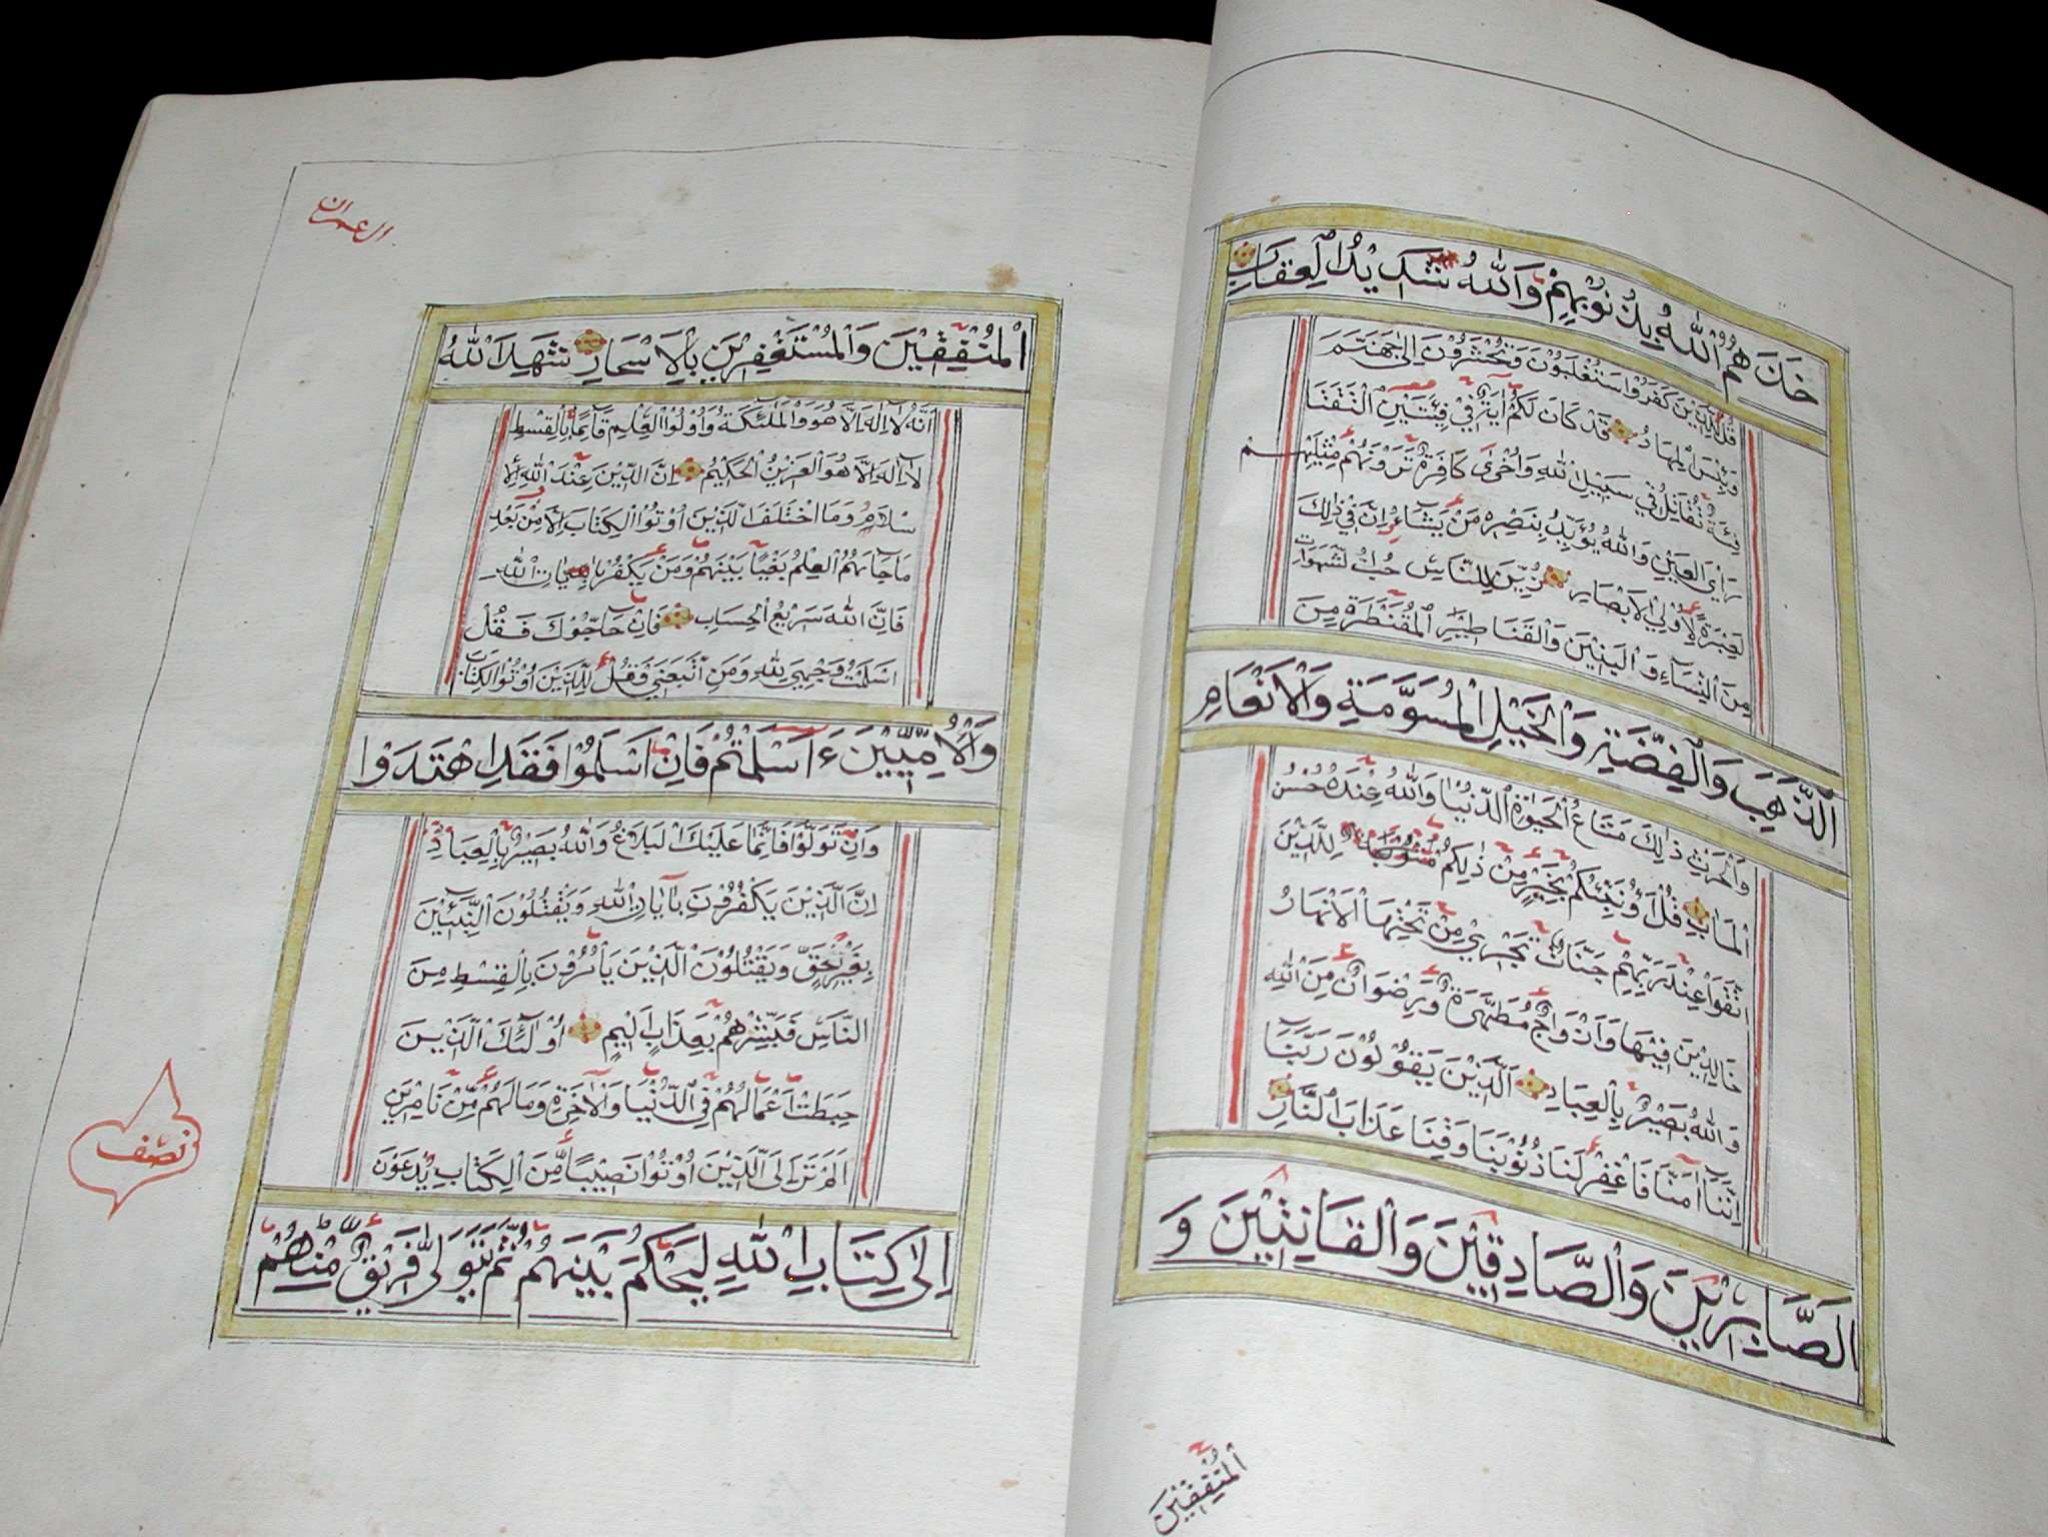 خَذَهُمُ اللّٰهُ بِذُنُوْبِهِمْ وَاللّٰهُ شَدِيْدُ الْعِقَابِ
قُلْ لِلَّذِيْنَ كَفَرُوْا سَتُغْلَبُوْنَ وَتُحْشَرُوْنَ اِلٰى جَهَنَّمَ
وَبِئْسَ الْمِهَادُ قَدْ كَانَ لَكُمْ اٰيَةٌ فِيْ فِئَتَيْنِ الْتَقَتَا
فِئَةٌ تُقَاتِلُ فِيْ سَبِيْلِ اللّٰهِ وَاُخْرٰى كَافِرَةٌ تَرَوْنَهُمْ مِثْلَيْهِمْ
رَاْيَ الْعَيْنِ وَاللّٰهُ يُؤَيِّدُ بِنَصْرِهٖ مَنْ يَشَآءُ اِنَّ فِيْ ذٰلِكَ
لَعِبْرَةً لِاُولِي الْاَبْصَارِ زُيِّنَ لِلنَّاسِ حُبُّ الشَّهَوَاتِ
مِنَ النِّسَآءِ وَالْبَنِيْنَ وَالْقَنَاطِيْرِ الْمُقَنْطَرَةِ مِنَ
الذَّهَبِ وَالْفِضَّةِ وَالْخَيْلِ الْمُسَوَّمَةِ وَالْاَنْعَامِ
وَالْحَرْثِ ذٰلِكَ مَتَاعُ الْحَيٰوةِ الدُّنْيَا وَاللّٰهُ عِنْدَهٗ حُسْنُ
الْمَاٰبِ قُلْ اَؤُنَبِّئُكُمْ بِخَيْرٍ مِنْ ذٰلِكُمْ لِلَّذِيْنَ
اتَّقَوْا عِنْدَ رَبِّهِمْ جَنَّاتٌ تَجْرِيْ مِنْ تَحْتِهَا الْاَنْهَارُ
خَالِدِيْنَ فِيْهَا وَاَزْوَاجٌ مُطَهَّرَةٌ وَرِضْوَانٌ مِنَ اللّٰهِ
وَاللّٰهُ بَصِيْرٌ بِالْعِبَادِ اَلَّذِيْنَ يَقُوْلُوْنَ رَبَّنَا
اِنَّنَا اٰمَنَّا فَاغْفِرْ لَنَا ذُنُوْبَنَا وَقِنَا عَذَابَ النَّارِ
اَلصَّابِرِيْنَ وَالصَّادِقِيْنَ وَالْقَانِتِيْنَ وَ
الْمُنْفِقِيْنَ
اٰل عمران
الْمُنْفِقِيْنَ وَالْمُسْتَغْفِرِيْنَ بِالْاَسْحَارِ شَهِدَ اللّٰهُ
اَنَّهٗ لَآ اِلٰهَ اِلَّا هُوَ وَالْمَلٰٓئِكَةُ وَاُولُوا الْعِلْمِ قَآئِمًا بِالْقِسْطِ
لَآ اِلٰهَ اِلَّا هُوَ الْعَزِيْزُ الْحَكِيْمُ اِنَّ الدِّيْنَ عِنْدَ اللّٰهِ الْاِ
سْلَامُ وَمَا اخْتَلَفَ الَّذِيْنَ اُوْتُوا الْكِتَابَ اِلَّا مِنْ بَعْدِ
مَا جَآءَهُمُ الْعِلْمُ بَغْيًا بَيْنَهُمْ وَمَنْ يَكْفُرْ بِاٰيَاتِ اللّٰهِ
فَاِنَّ اللّٰهَ سَرِيْعُ الْحِسَابِ فَاِنْ حَآجُّوْكَ فَقُلْ
اَسْلَمْتُ وَجْهِيَ لِلّٰهِ وَمَنِ اتَّبَعَنِيْ وَقُلْ لِلَّذِيْنَ اُوْتُوا الْكِتَابَ
وَالْاُمِّيّٖيْنَ ءَاَسْلَمْتُمْ فَاِنْ اَسْلَمُوْا فَقَدِ اهْتَدَوْا
وَاِنْ تَوَلَّوْا فَاِنَّمَا عَلَيْكَ الْبَلَاغُ وَاللّٰهُ بَصِيْرٌ بِالْعِبَادِ
اِنَّ الَّذِيْنَ يَكْفُرُوْنَ بِاٰيَاتِ اللّٰهِ وَيَقْتُلُوْنَ النَّبِيّٖيْنَ
بِغَيْرِ حَقٍّ وَيَقْتُلُوْنَ الَّذِيْنَ يَاْمُرُوْنَ بِالْقِسْطِ مِنَ
النَّاسِ فَبَشِّرْهُمْ بِعَذَابٍ اَلِيْمٍ اُولٰٓئِكَ الَّذِيْنَ
حَبِطَتْ اَعْمَالُهُمْ فِي الدُّنْيَا وَالْاٰخِرَةِ وَمَا لَهُمْ مِنْ نَاصِرِيْنَ
اَلَمْ تَرَ اِلَى الَّذِيْنَ اُوْتُوْا نَصِيْبًا مِنَ الْكِتَابِ يُدْعَوْنَ
اِلٰى كِتَابِ اللّٰهِ لِيَحْكُمَ بَيْنَهُمْ ثُمَّ يَتَوَلّٰى فَرِيْقٌ مِنْهُمْ
نصف